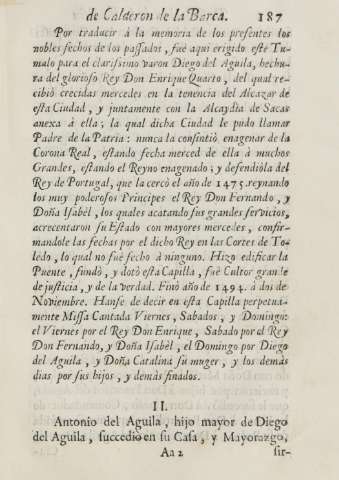 de Calderon de la Barca. 187
Por traducir à la memoria de los presentes los
nobles fechos de los passados, fuè aqui erigido este Tu-
mulo para el clarissimo varon Diego del Aguila, hechu-
ra del glorioso Rey Don Enrique Quarto, del qual re-
cibiò crecidas mercedes en la tenencia del Alcazar de
esta Ciudad, y juntamente con la Alcaydia de Sacas
anexa à ella; la qual dicha Ciudad le pudo llamar
Padre de la Patria: nunca la consintiò enagenar de la
Corona Real, estando fecha merced de ella à muchos
Grandes, estando el Reyno enagenado; y defendiòla del
Rey de Portugal, que la cercò el año de 1475. reynando
los muy poderosos Principes el Rey Don Fernando, y
Doña Isabèl, los quales acatando sus grandes servicios,
acrecentaron su Estado con mayores mercedes, confir-
mandole las fechas por el dicho Rey en las Cortes de To-
ledo, lo qual no fuè fecho à ninguno. Hizo edificar la
Puente, fundò, y dotò esta Capilla, fuè Cultor grande
de justicia, y de la verdad. Finò año de 1494. à dos de
Noviembre. Hanse de decir en esta Capilla perpetua-
mente Missa Cantada Viernes, Sabados, y Domingo:
el Viernes por el Rey Don Enrique, Sabado por el Rey
Don Fernando, y Doña Isabèl, el Domingo por Diego
del Aguila, y Doña Catalina su muger, y los demàs
dias por sus hijos, y demàs finados.
II.
Antonio del Aguila, hijo mayor de Diego
del Aguila, succediò en su Casa, y Mayorazgo,
Aa 2 sir-